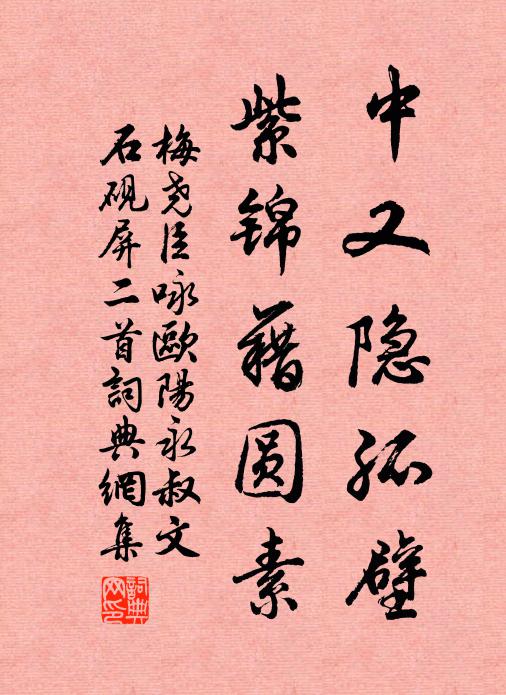 中又隐孤壁
紫锦藉圆素
梅尧臣咏歐陽永叔文
石砚屏二首詞典網集
詞典